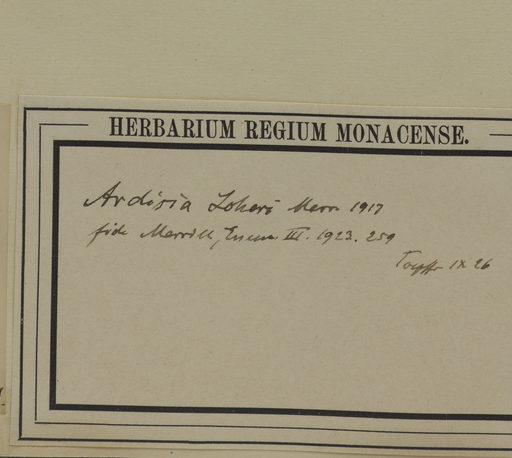 HERBARIUM REGIUM MONACENSE.
Ardisia Loheri Merr 1917
fide Merrill, Enum. III. 1923. 259
Toepffer IX 26